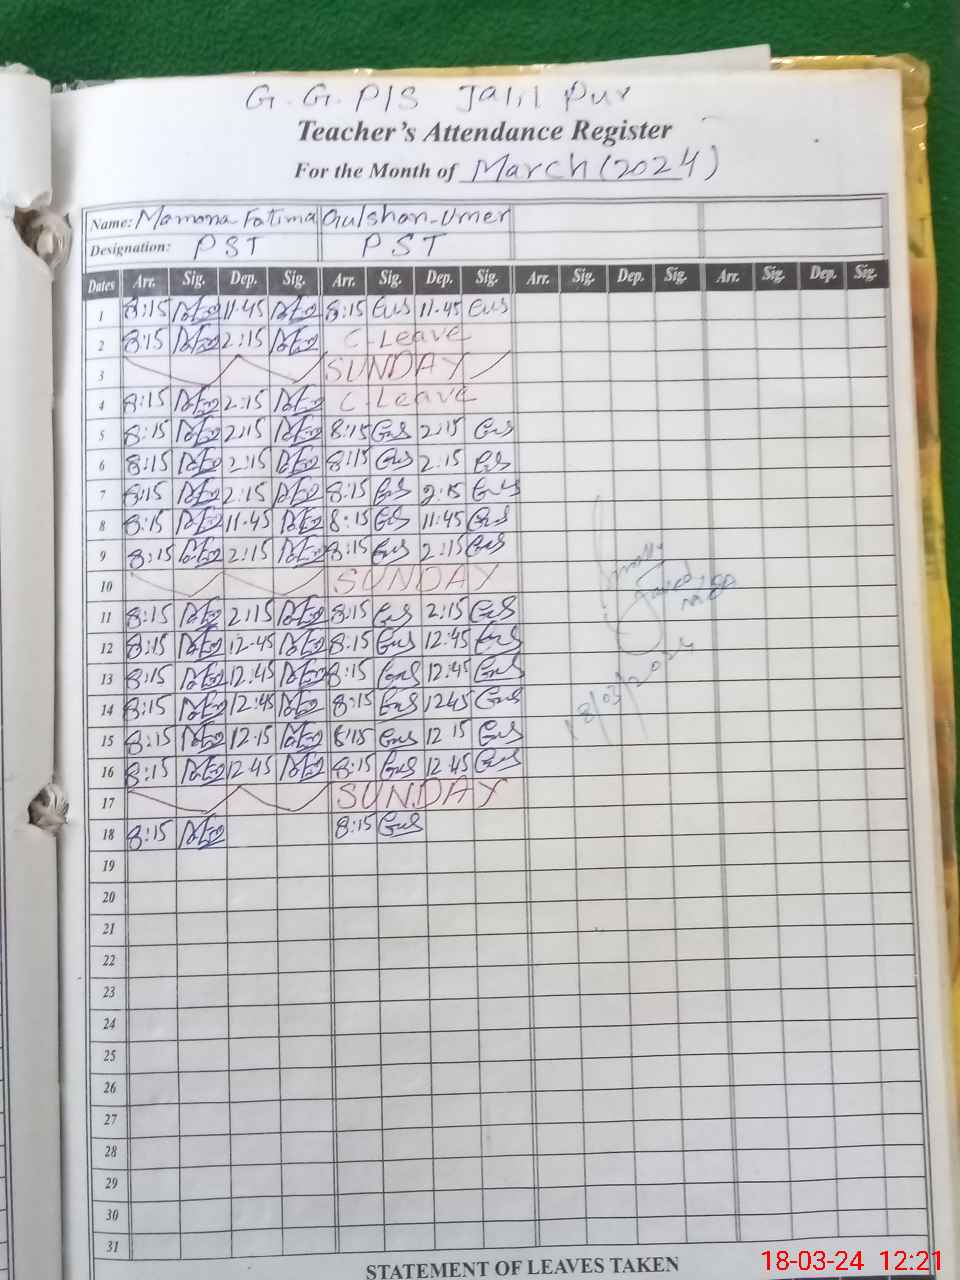 G. G. P/S Jalil Pur
Teacher's Attendance Register
For the Month of March (2024)
Name: Momona Fatima Gulshan-Umer
Designation: PST PST
Dates Arr. Sig. Dep. Sig. Arr. Sig. Dep. Sig. Arr. Sig. Dep. Sig. Arr. Sig. Dep. Sig.
1 8:15 11.45 8:15 Gus 11.45 Gus
2 8:15 2:15 C-Leave
3 SUNDAY
4 8:15 2:15 C-Leave
5 8:15 2:15 8:15 Gus 2:15 Gus
6 8:15 2:15 8:15 Gus 2.15 Gus
7 8:15 2:15 8:15 Gus 2:15 Gus
8 8:15 11.45 8:15 Gus 11:45 Gus
9 8:15 2:15 8:15 Gus 2:15 Gus
10 SUNDAY
11 8:15 2:15 8:15 Gus 2:15 Gus
12 8:15 12:45 8:15 Gus 12:45 Gus
13 8:15 12:45 8:15 Gus 12:45 Gus
14 8:15 12:45 8:15 Gus 1245 Gus
15 8:15 12:15 8:15 Gus 12 15 Gus
16 8:15 12 45 8:15 Gus 12:45 Gus
17 SUNDAY
18 8:15 8:15 Gus
18/03/2024
19
20
21
22
23
24
25
26
27
28
29
30
31
STATEMENT OF LEAVES TAKEN
18-03-24 12:21